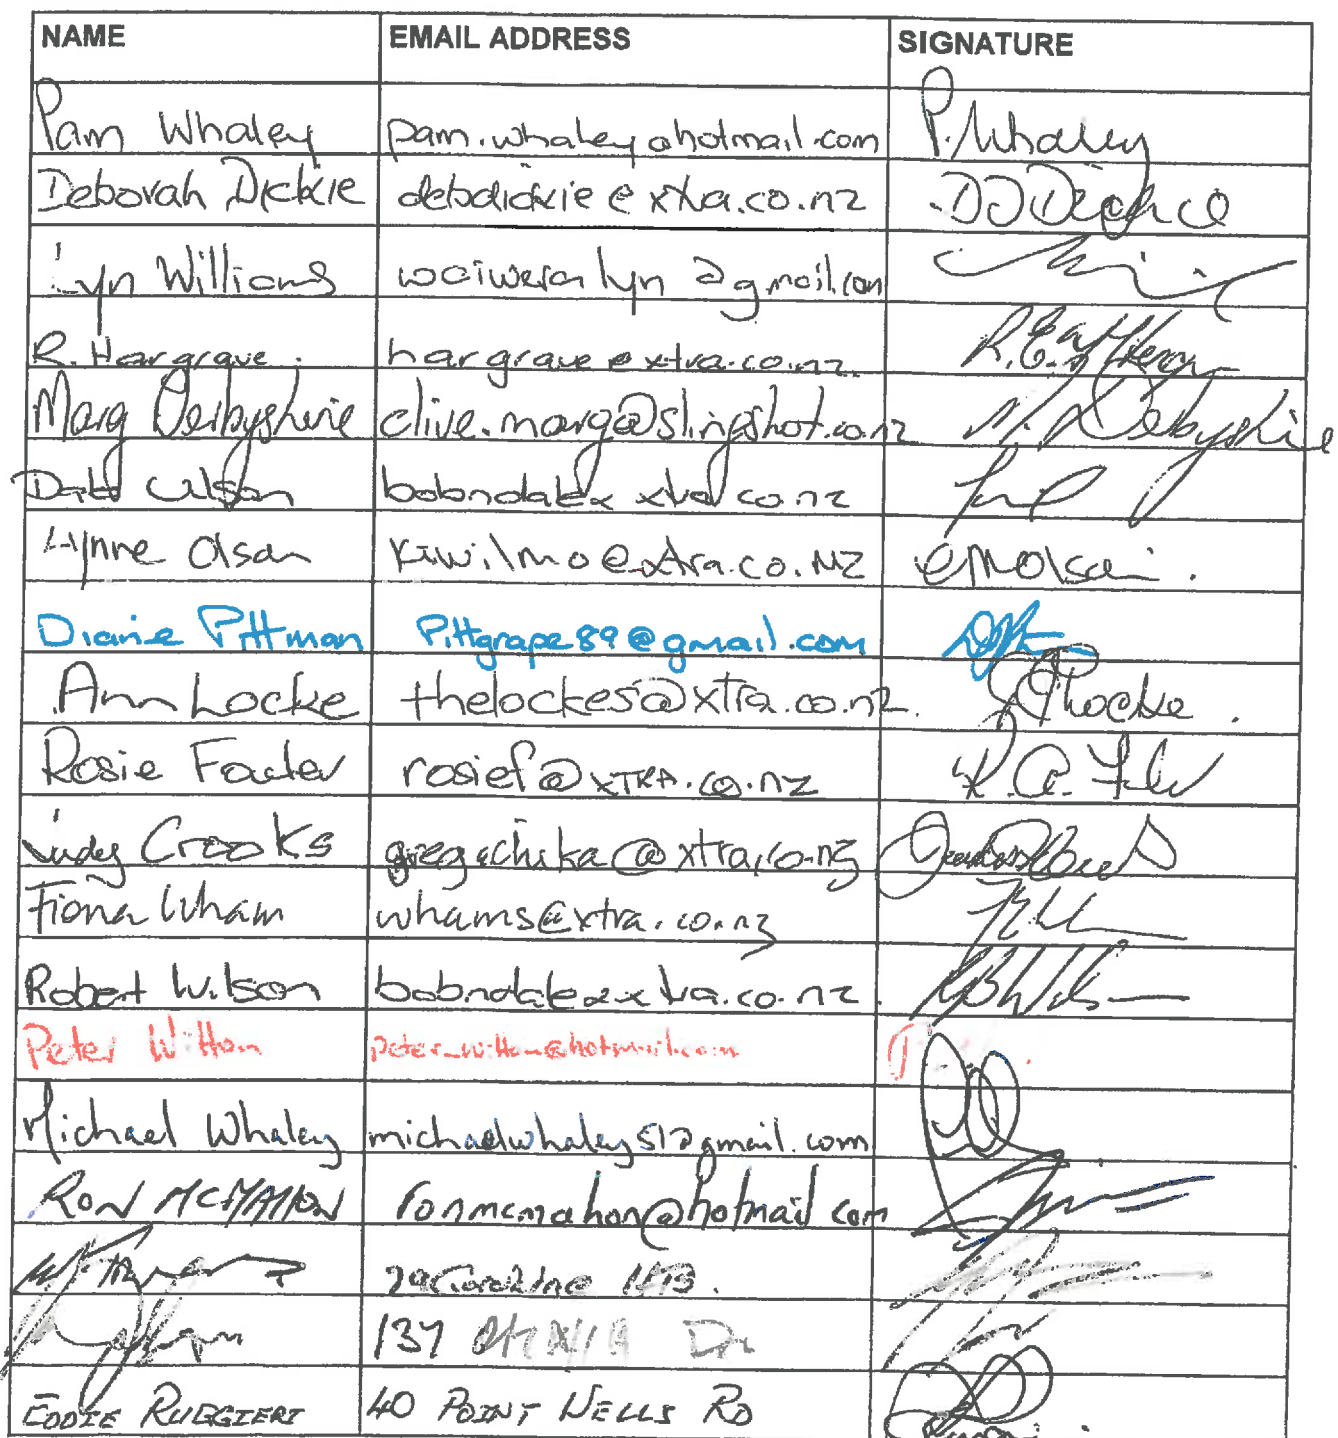 NAME EMAIL ADDRESS SIGNATURE
Pam Whaley pam.whaley@hotmail.com P. Whaley
Deborah Dickie debdickie@xtra.co.nz
Lyn Williams waiweralyn@gmail.com
R. Hargrave. hargrave@xtra.co.nz.
Marg Derbyshire clive.marg@slingshot.co.nz M. Derbyshire
Dale Wilson bobndale@xtra.co.nz
Lynne Olsan kiwilmo@xtra.co.NZ EMOlsan.
Diane Pittman Pittgrape89@gmail.com
Ann Locke thelockes@xtra.co.nz. Locke.
Rosie Fowler rosief@XTRA.co.nz
Judy Crooks greg&chika@xtra.co.nz
Fiona Wham whams@xtra.co.nz
Robert Wilson bobndale@xtra.co.nz.
Peter Witton peter_witton@hotmail.com
Michael Whaley michaelwhaley51@gmail.com
RON MCMAHON ronmcmahon@hotmail com
29
137 Dr
EDDIE RUGGIERI 40 POINT WELLS RD